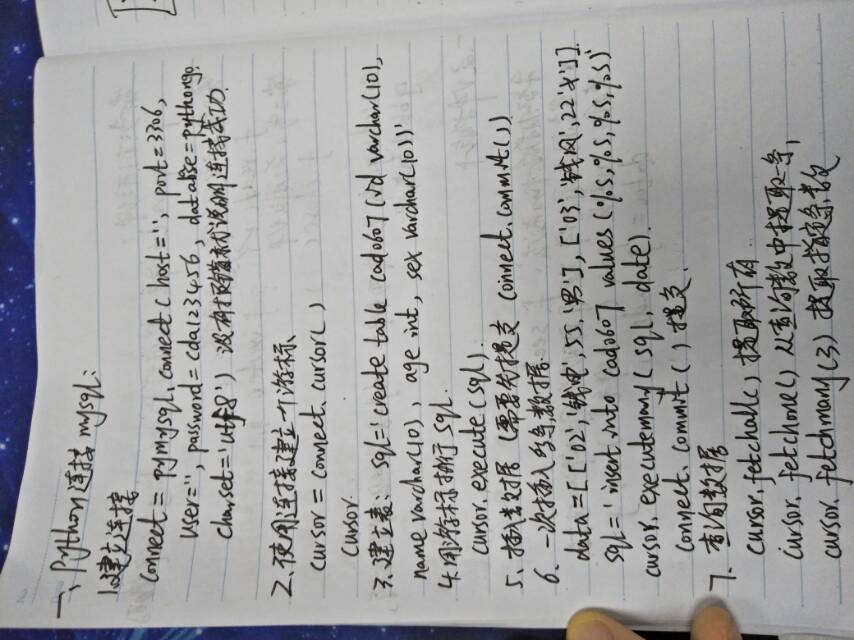 一、Python连接mysql:
1.建立连接
connect = pymysql.connect(host='', port=3306,
user='', password=cda123456, databse=pythongo,
charset='utf8') 没有报错就说明连接成功.
2、使用连接建立一个游标
cursor = connect.cursor()
cursor.
3.建立表: sql='create table cad0607(id varchar(10),
name varchar(10), age int, sex varchar(10))'
4.用游标执行sql.
cursor.execute(sql).
5、插入数据(需要先提交 connect.commit())
6、一次插入多条数据.
data=[['02','钱电',55,'男'],['03','钱风',22'女']].
sql='insert into cad0607 values(%s,%s,%s,%s)'
cursor.executemany(sql, date).
connect.commit() 提交.
7、查询数据
cursor.fetchall() 提取所有.
cursor.fetchone() 从查询数中提取一条,
cursor.fetchmany(3) 提取指定条数